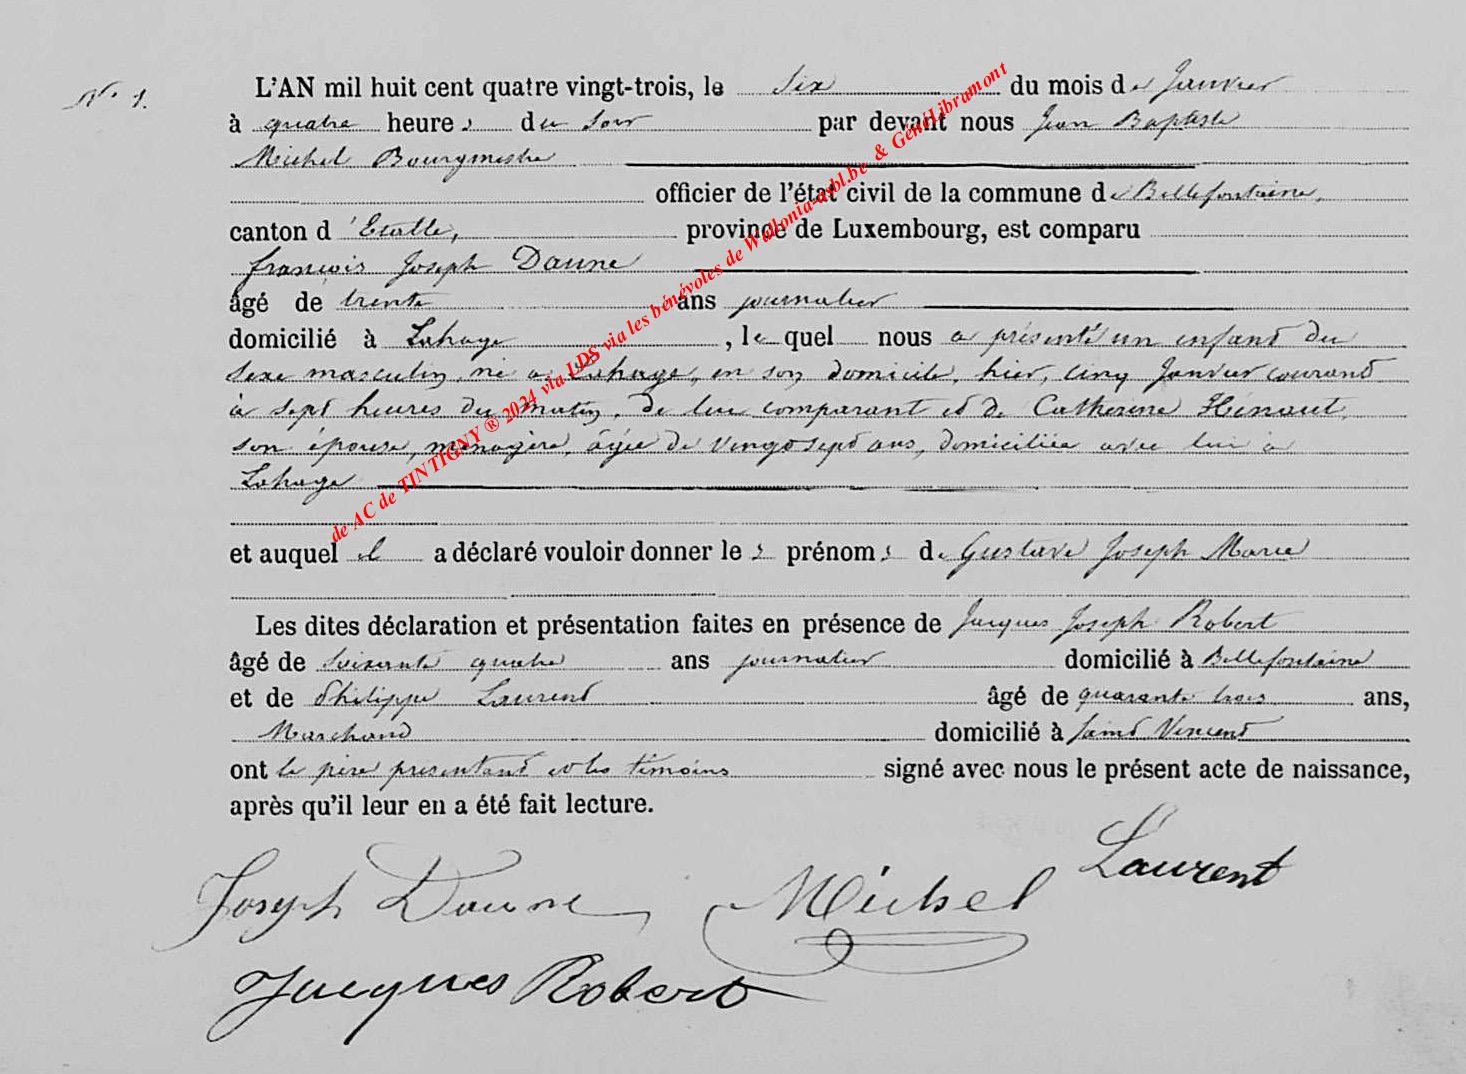 N° 1.
L'AN mil huit cent quatre vingt-trois, le six du mois de Janvier
à quatre heures du soir par devant nous Jean Baptiste
Michel Bourgmestre
officier de l'état civil de la commune de Bellefontaine,
canton d'Etalle, province de Luxembourg, est comparu
françois Joseph Daune
âgé de trente ans journalier
domicilié à Lahage, le quel nous a présenté un enfant du
sexe masculin, né à Lahage, en son domicile, hier, cinq Janvier courant
à sept heures du matin, de lui comparant et de Catherine Hénaut,
son épouse, ménagère, âgée de vingt sept ans, domiciliée avec lui à
Lahage
et auquel il a déclaré vouloir donner les prénoms de Gustave Joseph Marie
Les dites déclaration et présentation faites en présence de Jacques Joseph Robert
âgé de soixante quatre ans journalier domicilié à Bellefontaine
et de Philippe Laurent âgé de quarante trois ans,
Marchand domicilié à Saint Vincent
ont le père présentant et les témoins signé avec nous le présent acte de naissance,
après qu'il leur en a été fait lecture.
Laurent
Joseph Daune Michel
Jacques Robert
de AC de TINTIGNY ® 2024 via LDS via les bénévoles de Wallonia-asbl.be & GénéLibramont